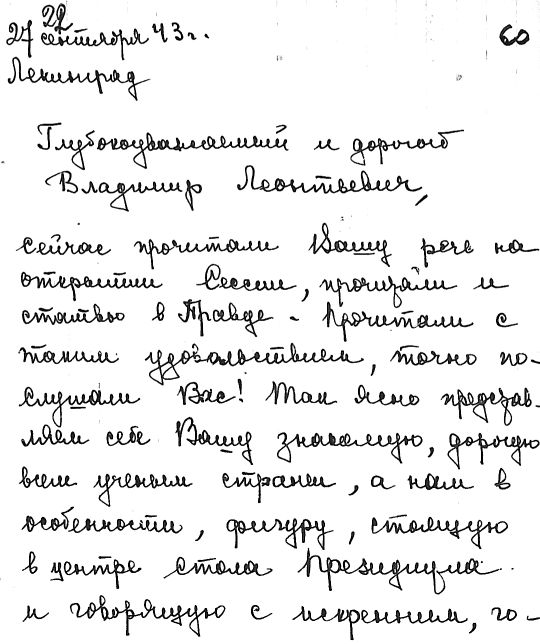 22
27 сентября 43 г.
60
Ленинград
Глубокоуважаемый и дорогой
Владимир Леонтьевич,
сейчас прочитали Вашу речь на
открытии Сессии, прочитали и
статью в Правде - Прочитали с
таким удовольствием, точно по-
слушали Вас! Так ясно представ-
ляем себе Вашу знакомую, дорогую
всем ученым страны, а нам в
особенности, фигуру, стоящую
в центре стола Президиума
и говорящую с искренним, го-